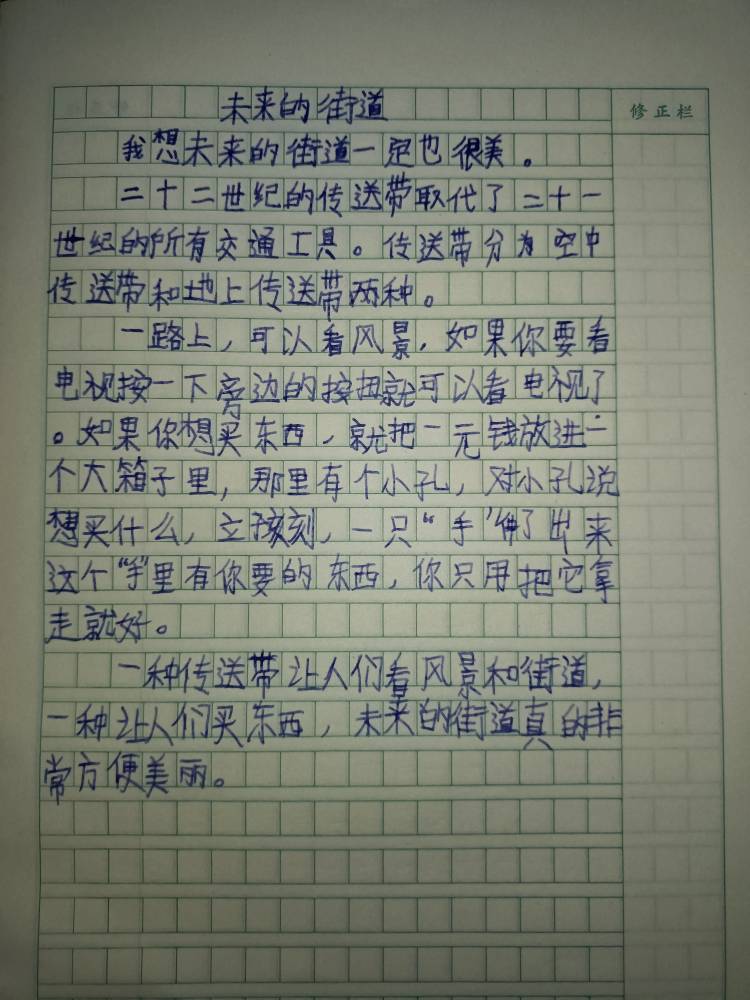 未来的街道
修正栏
我想未来的街道一定也很美。
二十二世纪的传送带取代了二十一
世纪的所有交通工具。传送带分为空中
传送带和地上传送带两种。
一路上，可以看风景，如果你要看
电视按一下旁边的按扭就可以看电视了
。如果你想买东西，就把一元钱放进一
个大箱子里，那里有个小孔，对小孔说
想买什么，立孩刻，一只“手”伸了出来
这个“手”里有你要的东西，你只用把它拿
走就好。
一种传送带让人们看风景和街道，
一种让人们买东西，未来的街道真的非
常方便美丽。